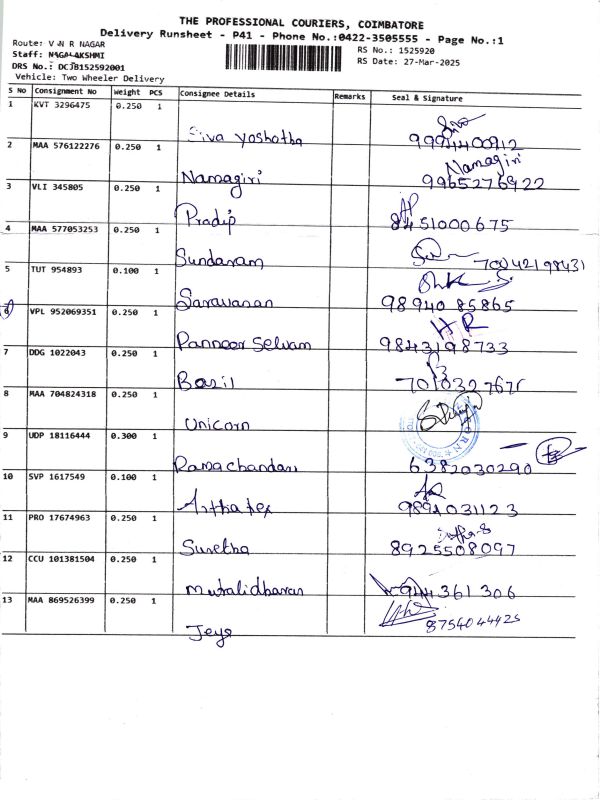 THE PROFESSIONAL COURIERS, COIMBATORE
Delivery Runsheet - P41 - Phone No.:0422-3505555 - Page No.:1
Route: V N R NAGAR
RS No.: 1525920
Staff: NAGALAKSHMI
RS Date: 27-Mar-2025
DRS No.: DCJB152592001
Vehicle: Two Wheeler Delivery
S No Consignment No Weight PCS Consignee Details Remarks Seal & Signature
1 KVT 3296475 0.250 1 Siva yoshotha 9994400912
2 MAA 576122276 0.250 1 Namagiri Namagiri 9965276922
3 VLI 345805 0.250 1 Pradip 8451000675
4 MAA 577053253 0.250 1 Sundaram 70042198431
5 TUT 954893 0.100 1 Saravanan 98940 85865
6 VPL 952069351 0.250 1 Panneer Selvam HR 9843198733
7 DDG 1022043 0.250 1 Basil
8 MAA 704824318 0.250 1 Unicorn
9 UDP 18116444 0.300 1 Ramachandan 6382030290
10 SVP 1617549 0.100 1 Arthatex 9894031123
11 PRO 17674963 0.250 1 Suretha 8925508097
12 CCU 101381504 0.250 1 Muralidharan 944361 306
13 MAA 869526399 0.250 1 Jeya 8754044425